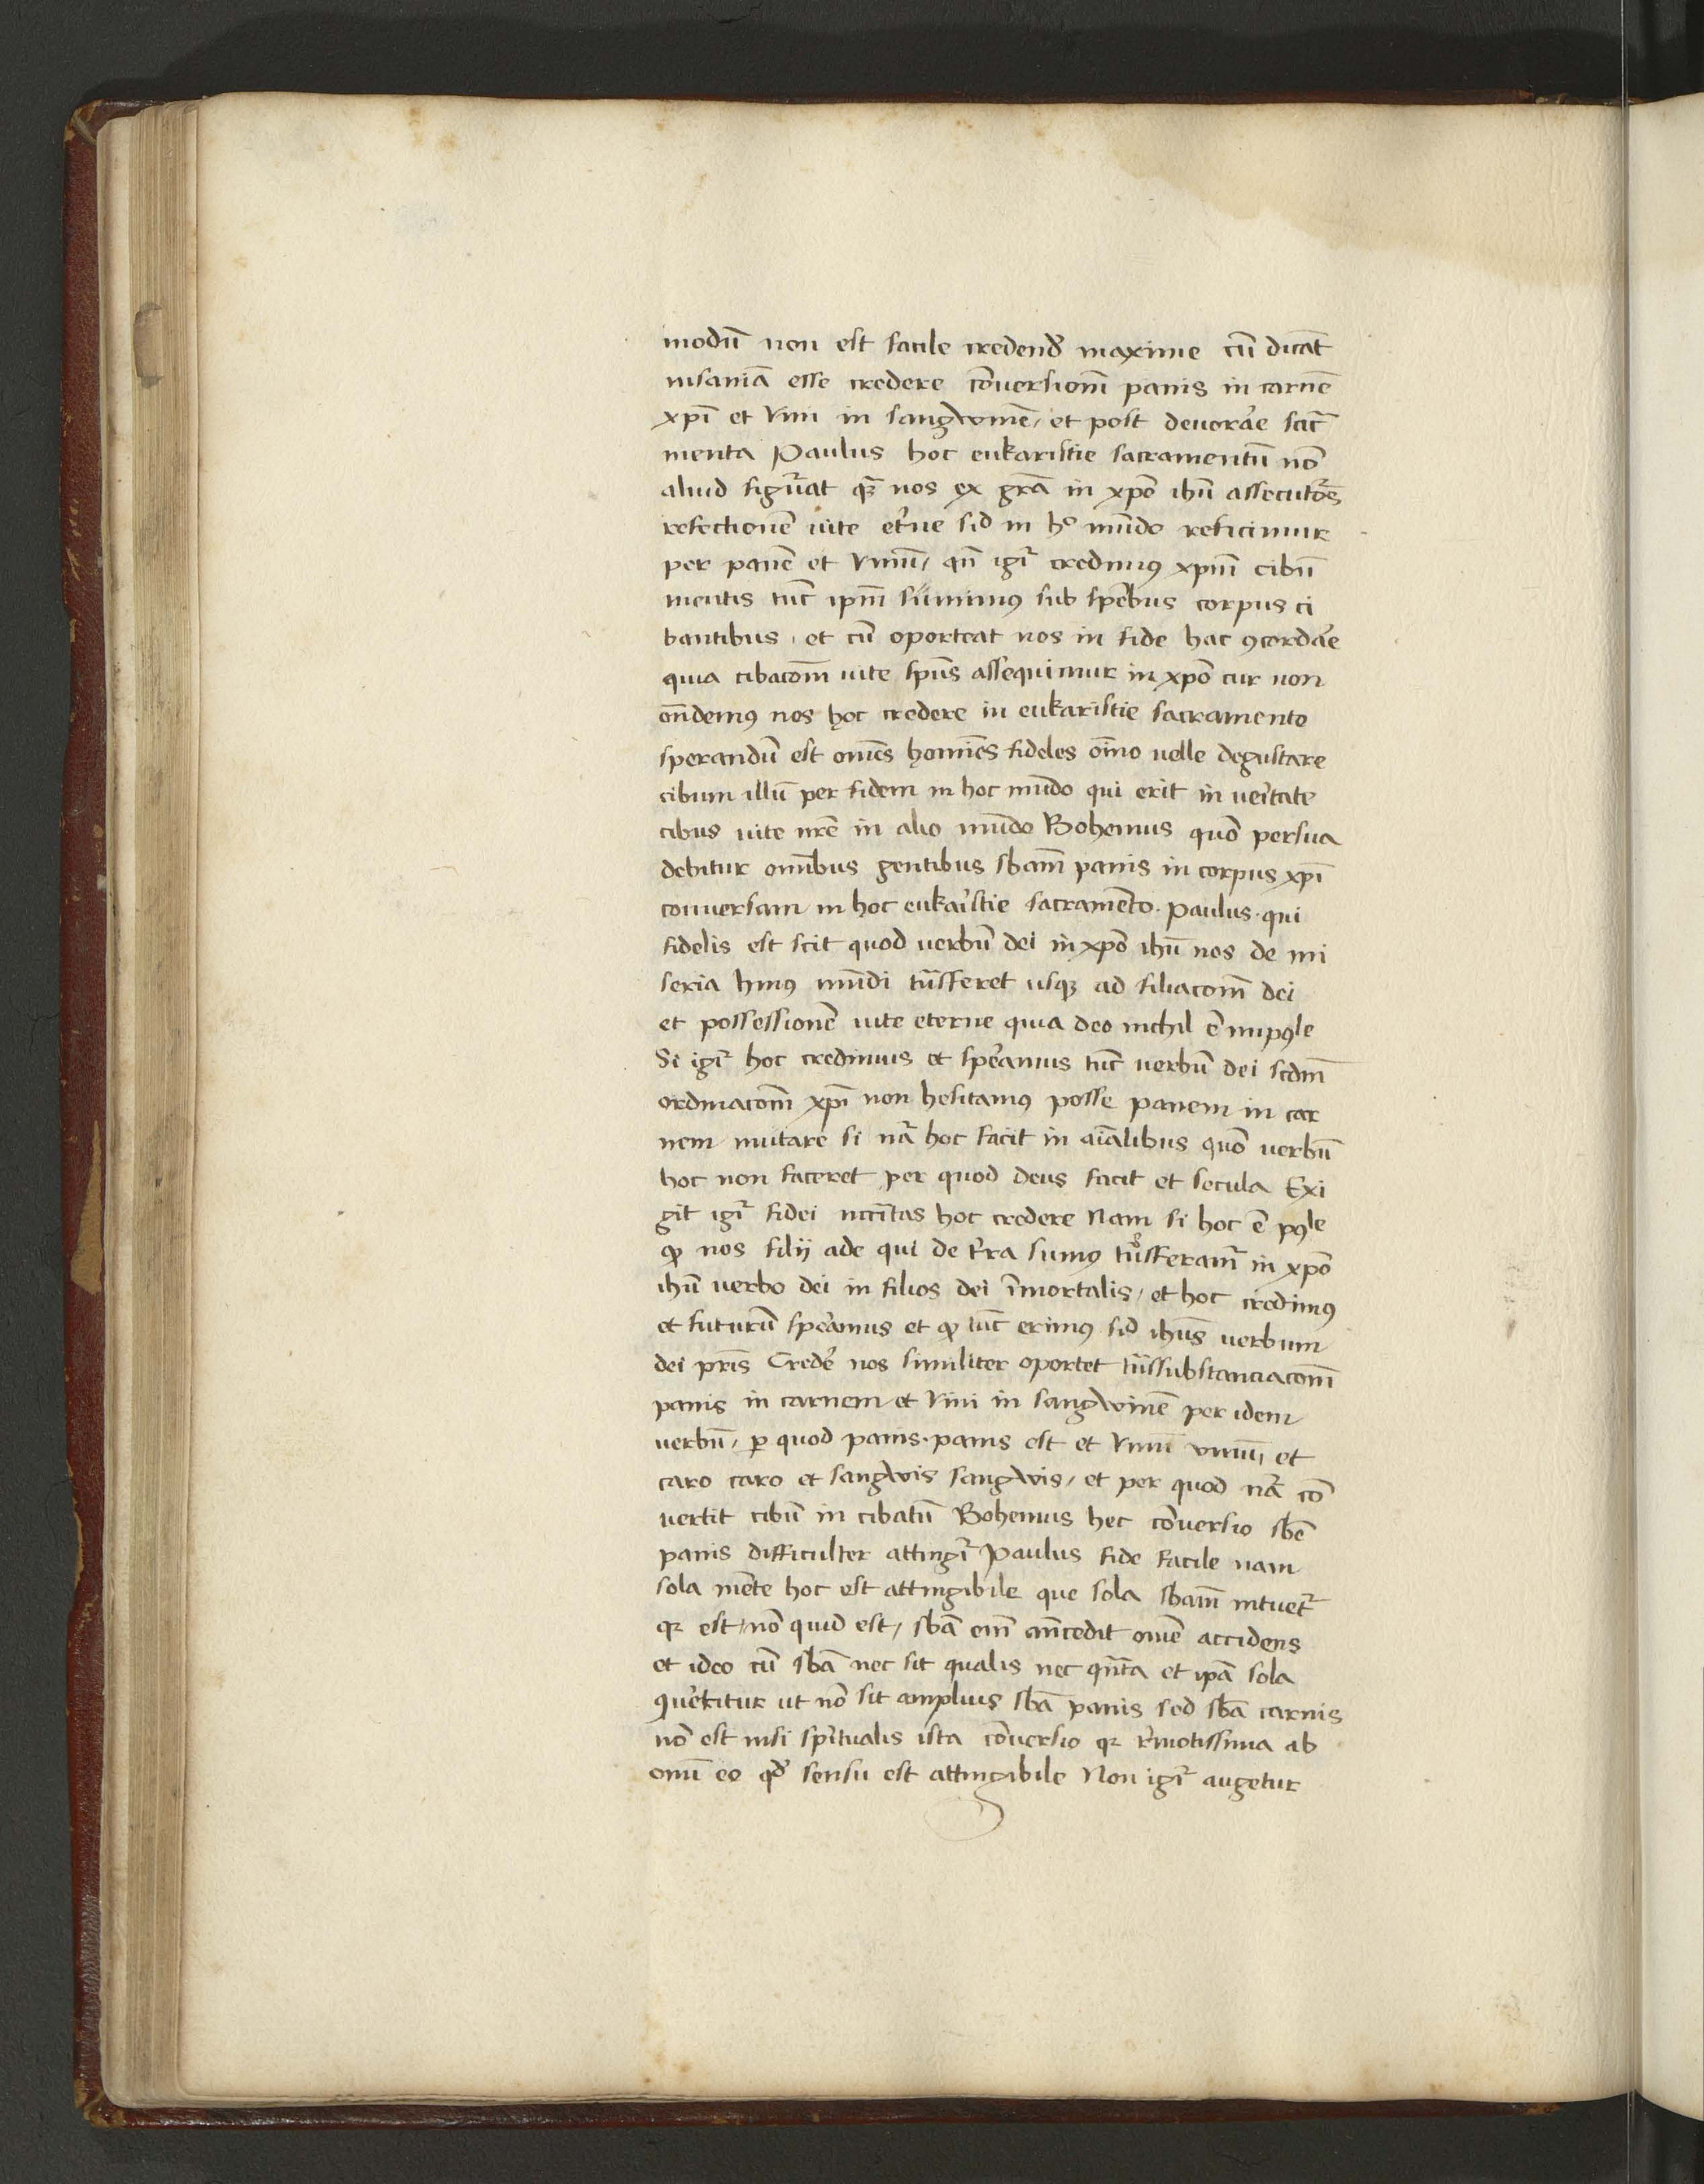 modū non est facile credend maxime cū dicāt
insaniā esse credere cōuersionē panis in carnē
xpī et vini in sangwinē / et post deuorar̄e sacr̄
menta Paulus hoc eukaristie sacramentū nō
aliud figur̄at q̄ nos ex grā in xpō ihū assecutōs
refectionē uite et̄ne sic̄ in hͦ mūdo reficimur
per panē et vinū / qn̄ igr̄ credimꝰ xpm̄ cibū
mentis tūc ipm̄ sumimꝰ sub spēbus corpus ci
bantibus . et cū oporteat nos in fide hac ꝯcordar̄e
quia cibacōm uite spūs assequimur in xpō cur non
on̄demꝰ nos hoc credere in eukaristie sacramento
sperandū est om̄es homīes fideles oīno uelle degustare
cibum illū per fidem in hoc mūdo qui erit in ueritate
cibus uite nr̄e in alio mūdo Bohemus quō persua
debitur omībus gentibus sbam̄ panis in corpus xpī
conuersam in hoc eukaristie sacramēto . paulus . qui
fidelis est scit quod uerbū dei in xpō ihū nos de mi
seria huiꝰ mūdi trāsferet usqꝫ ad filiacōm dei
et possessionē uite eterne quia deo nichil ē impoꝰle
Si igr̄ hoc credimus et spēramus tūc uerbū dei scdm̄
ordinacōm xpī non hesitamꝰ posse panem in car
nem mutare si nā hoc facit in aīalibus quō uerbū
hoc non faceret per quod deus facit et secula Exi
git igr̄ fidei nccītas hoc credere Nam si hoc ē poꝰle
ꝙ nos filij ade qui de t̄ra sumꝰ trāsferamr̄ in xpō
ihū uerbo dei in filios dei īmortalis / et hoc credimꝰ
et futurū spēramus et ꝙ tūc erimꝰ sic̄ ihūs uerbum
dei pr̄is Credēr nos similiter oportet trāssubstanciacōm
panis in carnem et vini in sangwinē per idem
uerbū / ꝑ quod panis . panis est et vinū vinū / et
caro caro et sangwis sangwis / et per quod nā cō
uertit cibū in cibatū Bohemus hec cōuersio sbē
panis difficulter attingr̄ Paulus fide facile nam
sola mēte hoc est attingibile que sola sbam̄ intuetr̄
qꝛ est / nō quid est / sbā em̄ an̄cedit omē accidens
et ideo cū sbā nec sit qualis nec qn̄ta et ipā sola
ꝯuertitur ut nō sit amplius sbā panis sed sbā carnis
nō est nisi spiritualis ista cōuersio qꝛ r̄motissima ab
omī eo qd̄ sensu est attingibile Non igr̄ augetur